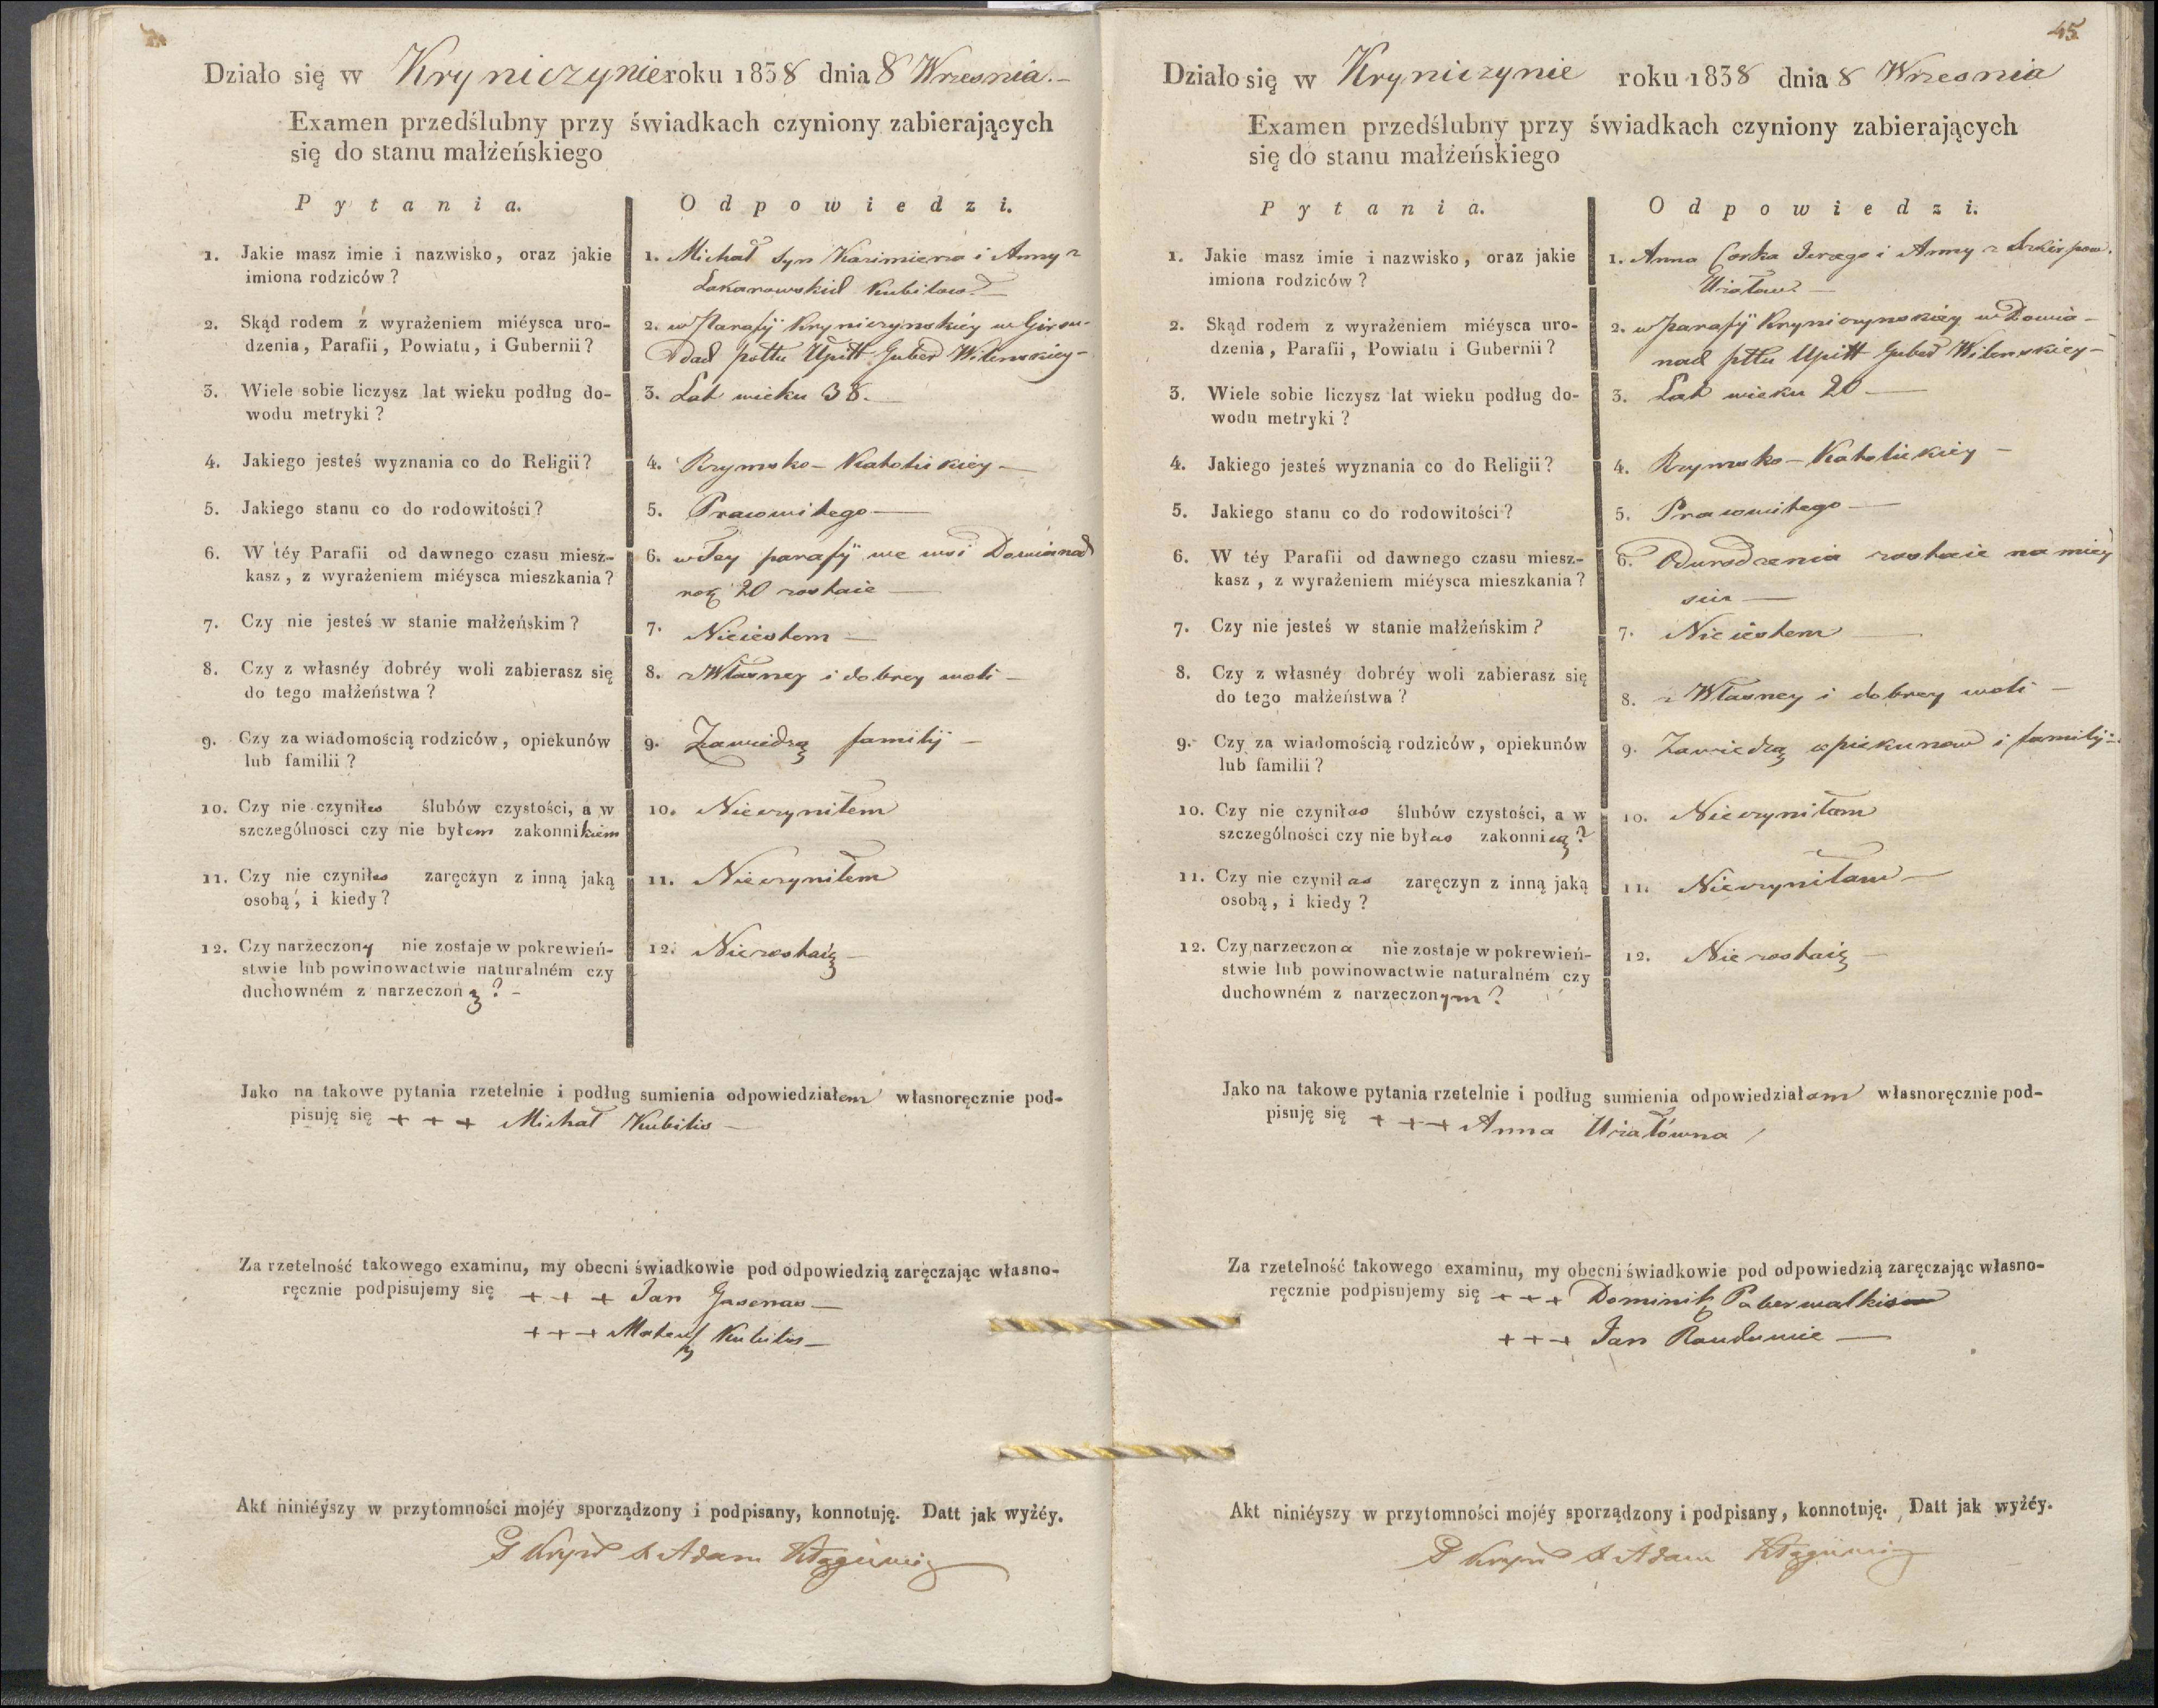 Działo się w Kryniczynie roku 1838 dnia 8 Wrzesnia.-
Examen przedślubny przy świadkach czyniony zabierających
się do stanu małżeńskiego
Pytania.
Odpowiedzi.
1. Jakie masz imie i nazwisko, oraz jakie
imiona rodziców?
1. Michał syn Kazimierza i Anny z
Kubilow
2. Skąd rodem z wyrażeniem miéysca uro-
dzenia, Parafii, Powiatu, i Gubernii?
2. w Parafij Kryniczynskiéy w Girsu-
dad pottu Upitt Guber Wilenskiey-
3. Wiele sobie liczysz lat wieku podług do-
wodu metryki?
3. Lat wieku 38.
4. Jakiego jesteś wyznania co do Religii?
4. Rzymsko-Katolickiey-
5. Jakiego stanu co do rodowitości?
5. Prawowitego
6. W téy Parafii od dawnego czasu miesz-
kasz, z wyrażeniem miéysca mieszkania?
6. w Tey parafij we wsi Dowianad
rok 20 zostaie
7. Czy nie jesteś w stanie małżeńskim?
7. Nieiestem
8. Czy z własnéy dobréy woli zabierasz się
do tego małżeństwa?
8. z Własney i dobrey woli-
9. Czy za wiadomością rodziców, opiekunów
lub familii?
9. Zawiedzą familij-
10. Czy nie czyniłes ślubów czystości, a w
szczególnosci czy nie byłem zakonnikiem
10. Nieczyniłem
11. Czy nie czyniłes zaręczyn z inną jaką
osobą, i kiedy?
11. Nieczyniłem
12. Czy narzeczony nie zostaje w pokrewień-
stwie lub powinowactwie naturalném czy
duchowném z narzeczoną?-
12. Niezostaią
Jako na takowe pytania rzetelnie i podług sumienia odpowiedziałem własnoręcznie pod-
pisuję się + + + Michał Kubilis
Za rzetelność takowego examinu, my obecni świadkowie pod odpowiedzią zaręczając własno-
ręcznie podpisujemy się + + + Jan Gasenas
+ + + Mateusz Kubilis
Akt niniéyszy w przytomności mojéy sporządzony i podpisany, konnotuję. Datt jak wyżéy.
Adam
45.
Działo się w Kryniczynie roku 1838 dnia 8 Wrzesnia
Examen przedślubny przy świadkach czyniony zabierających
się do stanu małżeńskiego
Pytania.
Odpowiedzi.
1. Jakie masz imie i nazwisko, oraz jakie
imiona rodziców?
1. Anna Corka Jerzego i Anny z
Uziałow
2. Skąd rodem z wyrażeniem miéysca uro-
dzenia, Parafii, Powiatu i Gubernii?
2. w Parafij Kryniczynskiey w Dowia-
nad pttu Upitt Guber Wilenskiey-
3. Wiele sobie liczysz lat wieku podług do-
wodu metryki?
3. Lat wieku 20
4. Jakiego jesteś wyznania co do Religii?
4. Rzymsko-Katolickiey-
5. Jakiego stanu co do rodowitości?
5. Prawowitego
6. W téy Parafii od dawnego czasu miesz-
kasz, z wyrażeniem miéysca mieszkania?
6. Od urodzenia zostaie na miey
scu
7. Czy nie jesteś w stanie małżeńskim?
7. Nieiestem
8. Czy z własnéy dobréy woli zabierasz się
do tego małżeństwa?
8. z Własney i dobrey woli-
9. Czy za wiadomością rodziców, opiekunów
lub familii?
9. Zawiedzą opiekunow i familij-
10. Czy nie czyniłas ślubów czystości, a w
szczególności czy nie byłas zakonnicą?
10. Nieczyniłam
11. Czy nie czyniłas zaręczyn z inną jaką
osobą, i kiedy?
11. Nieczyniłam
12. Czy narzeczona nie zostaje w pokrewień-
stwie lub powinowactwie naturalném czy
duchowném z narzeczonym?
12. Niezostaią
Jako na takowe pytania rzetelnie i podług sumienia odpowiedziałam własnoręcznie pod-
pisuję się + + + Anna Uziałówna
Za rzetelność takowego examinu, my obecni świadkowie pod odpowiedzią zaręczając własno-
ręcznie podpisujemy się + + + Dominik
+ + + Jan
Akt niniéyszy w przytomności mojéy sporządzony i podpisany, konnotuję. Datt jak wyżéy.
Adam